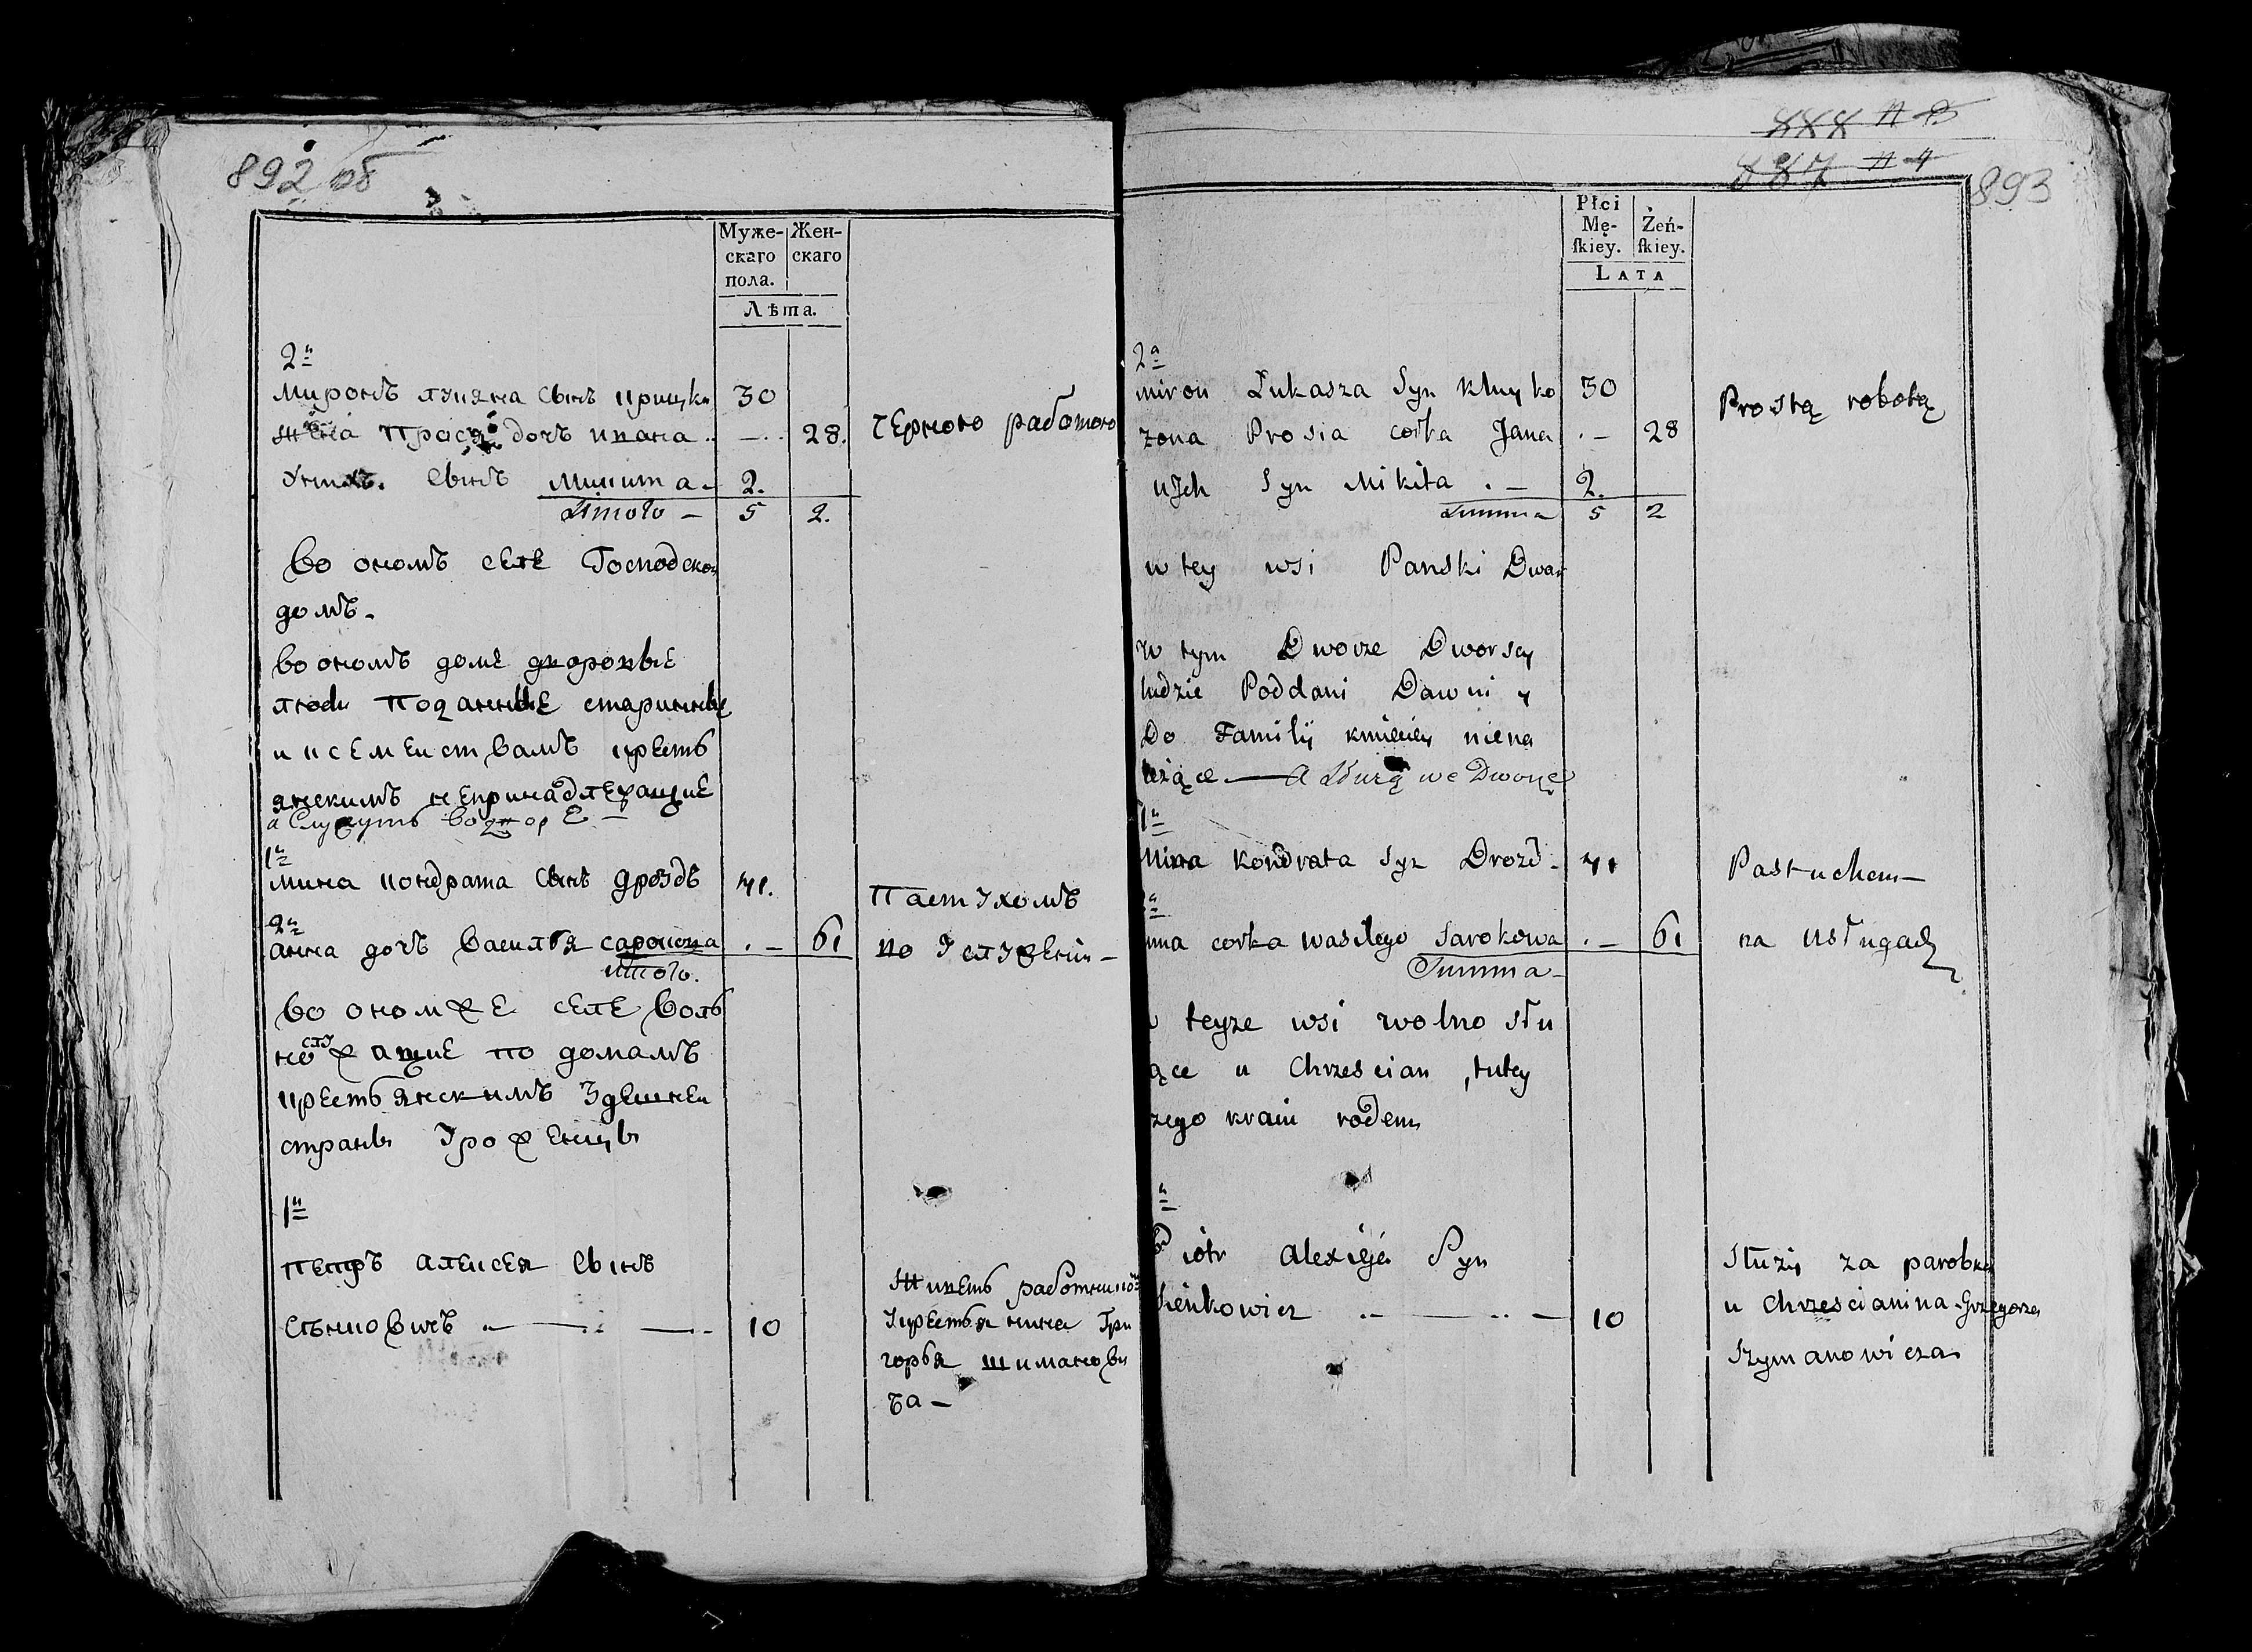 892 об
Муже-
скаго
пола.
Жен-
скаго
Лѣта.
2й
Миронъ лукяна сынъ крицко 30
жена Прося дочъ ивана . — . . 28. чернои работою
Уних. Сынъ микита - 2.
Итого — 5 2.
Во ономъ селе Господскои
домъ -
во ономъ доме дворовые
люди Поданные старинные
и к семеиствамъ кресть
янскимъ непринадлежащие
а Служутъ во дворе —
1й
мина кондрата сынъ дроздъ 71. Пастухомъ
2я
анна дочъ василья сарокова . — 61 по Услужении —
итого.
во ономже селе воль
нослужащие по домамъ
крестьянскимъ Здешнеи
страны Уроженцы
1й
петръ алексея сынъ
Сѣнковичъ .. — .. — .. 10
живетъ работником
Укрестьянина Гри
горья шиманови
ча —
893
Płci
Mę-
ſkiey.
Żeń-
ſkiey.
LATA
2a
miron Łukasza Syn 30 Prostą robotą
żona Prosia corka Jana . — 28
uJch Syn Mikita . — 2.
Summa 5 2
w tey wsi Panski Dwor
W tym Dworze Dworscy
ludzie Poddani Dawni y
Do Familij kmieciey niena
leżące — A Służą we Dworze
1y
Mina Kondrata Syn Drozd - 71 Pastuchem —
nna corka wasilego Sarokowa . — 61 na Usługach
Summa —
w teyże wsi wolno słu
ące u Chrzescian , tutey
szego kraiu rodem
Piotr Alexieja Syn
Sieńkowicz .. — .. — 10
Służy za parobka
u Chrzescianina Grzegorza
Szymanowicza